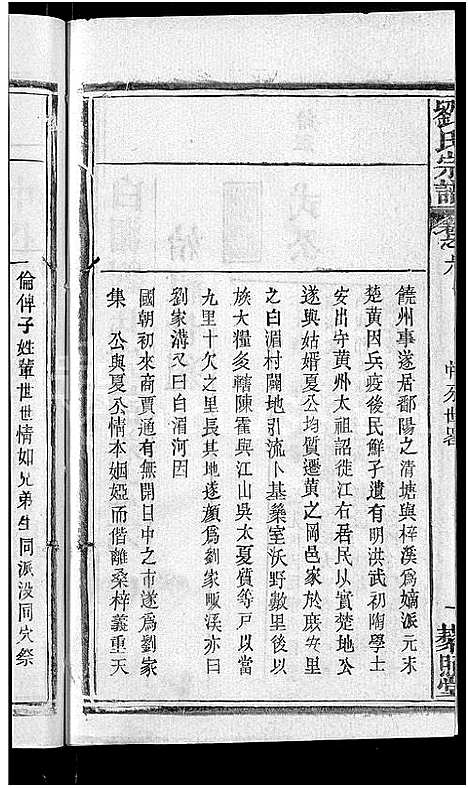 劉氏宗譜
卷之六
世畧
一
藜照堂
饒州事遂居鄱陽之清塘與梓溪爲嫡派元末
楚黄因兵疫後民鮮孑遺有明洪武初陶學士
安出守黄州太祖詔徙江右居民以實楚地公
遂與姑婿夏公均質遷黄之岡邑家於庶安里
之白湄村闢地引流卜基藥室沃野數里後以
族大糧多轄陳霍與江山吳太夏質等戸以當
九里十欠之里長其地遂顔爲劉家畈溪亦曰
劉家溝又曰白湄河因
國朝初來商賈通有無開日中之市遂爲劉家
集 公與夏公情本姻婭而偕離桑梓義重天
倫俾子姓輩世世情如兄弟生同派没同穴祭